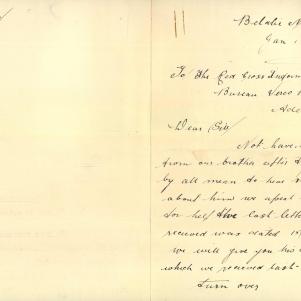 Belalie N
Jan 1
To the Red Cross Inquir
Bureau Verco
Ade
Dear Sir
Not have
from our brother after
by all mean to hear
about him we apeal
for help the last lette
received was dated 19
we will give you his
which we received last
turn over